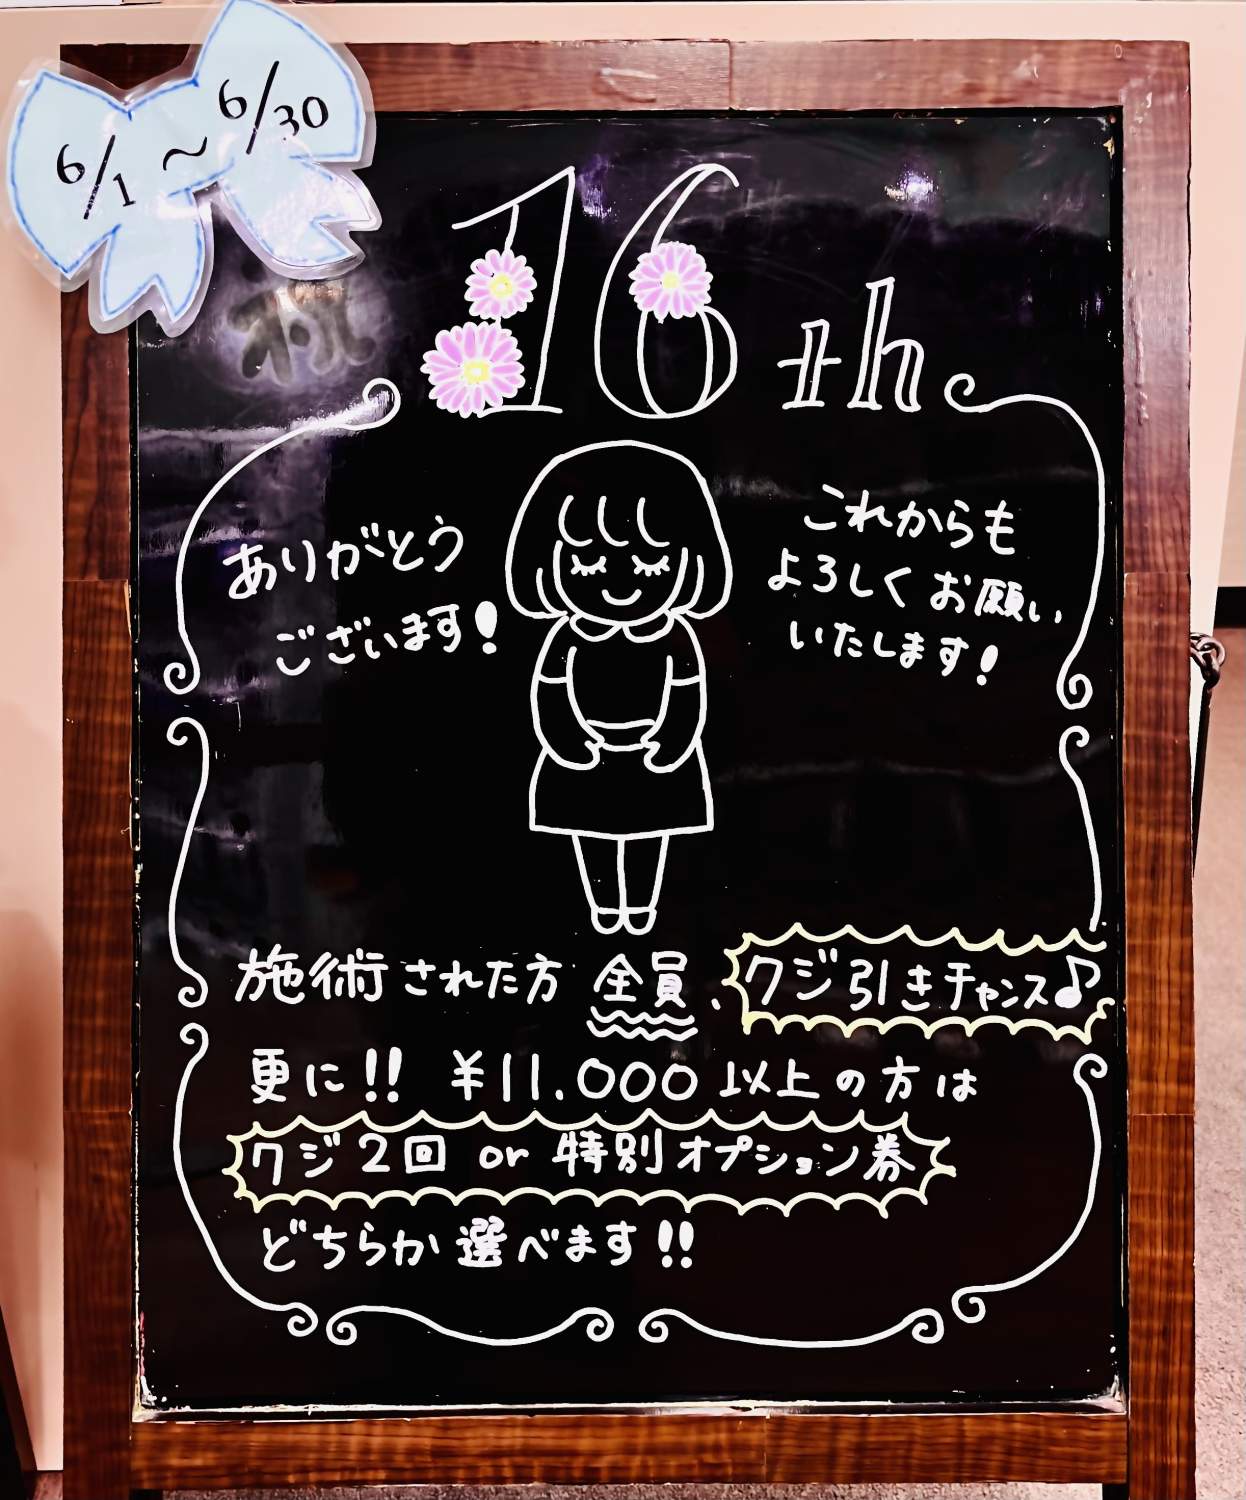 6/1 ～ 6/30
祝
16th
ありがとう
ございます!
これからも
よろしくお願い
いたします!
施術された方 全員、クジ引きチャンス♪
更に!! ¥11.000 以上の方は
クジ2回 or 特別オプション券
どちらか選べます!!